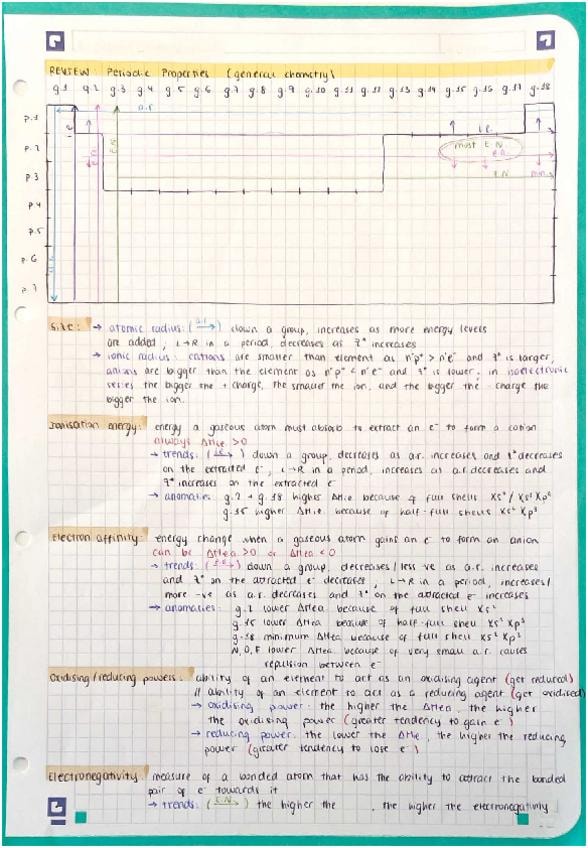 REVIEW: Periodic Properties (general chemistry)
g.1 g.2 g.3 g.4 g.5 g.6 g.7 g.8 g.9 g.10 g.11 g.12 g.13 g.14 g.15 g.16 g.17 g.18
a.r.
p.1
i.e.
p.2
most E.N.
e.a.
p.3
E.N.
min.
p.4
p.5
p.6
p.7
i.e.
e.a.
E.N.
a.r.
Size: → atomic radius: (a.r.→) down a group, increases as more energy levels
are added, L→R in a period, decreases as z* increases
→ ionic radius: cations are smaller than element as nºp⁺ > nºe⁻ and z* is larger,
anions are bigger than the element as nºp⁺ < nºe⁻ and z* is lower; in isoelectronic
series the bigger the + charge, the smaller the ion, and the bigger the - charge the
bigger the ion.
Ionisation energy: energy a gaseous atom must absorb to extract an e⁻ to form a cation
always ΔHie >0
→ trends: (i.e.→) down a group, decreases as a.r. increases and z* decreases
on the extracted e⁻, L→R in a period, increases as a.r. decreases and
z* increases on the extracted e⁻
→ anomalies: g.2 + g.18 higher ΔHie because of full shells xs² / xs² xp⁶
g.15 higher ΔHie because of half-full shells xs² xp³
Electron affinity: energy change when a gaseous atom gains an e⁻ to form an anion
can be ΔHea >0 or ΔHea <0
→ trends: (e.a.→) down a group, decreases/less -ve as a.r. increases
and z* on the attracted e⁻ decreases, L→R in a period, increases/
more -ve as a.r. decreases and z* on the attracted e⁻ increases
→ anomalies: g.2 lower ΔHea because of full shell xs²
g.15 lower ΔHea because of half-full shell xs² xp³
g.18 minimum ΔHea because of full shell xs² xp⁶
N, O, F lower ΔHea because of very small a.r. causes
repulsion between e⁻
Oxidising/reducing powers: ability of an element to act as an oxidising agent (get reduced)
// ability of an element to act as a reducing agent (get oxidised)
→ oxidising power: the higher the ΔHea, the higher
the oxidising power (greater tendency to gain e⁻)
→ reducing power: the lower the ΔHie, the higher the reducing
power (greater tendency to lose e⁻)
Electronegativity: measure of a bonded atom that has the ability to attract the bonded
pair of e⁻ towards it
→ trends: (E.N.→) the higher the , the higher the electronegativity